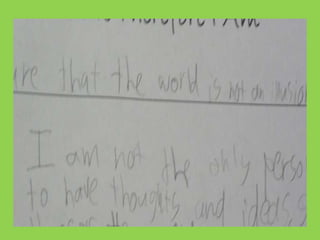 Therefore I Am
are that the world is not an illusion
I am not the only perso
to have thoughts and ideas, s